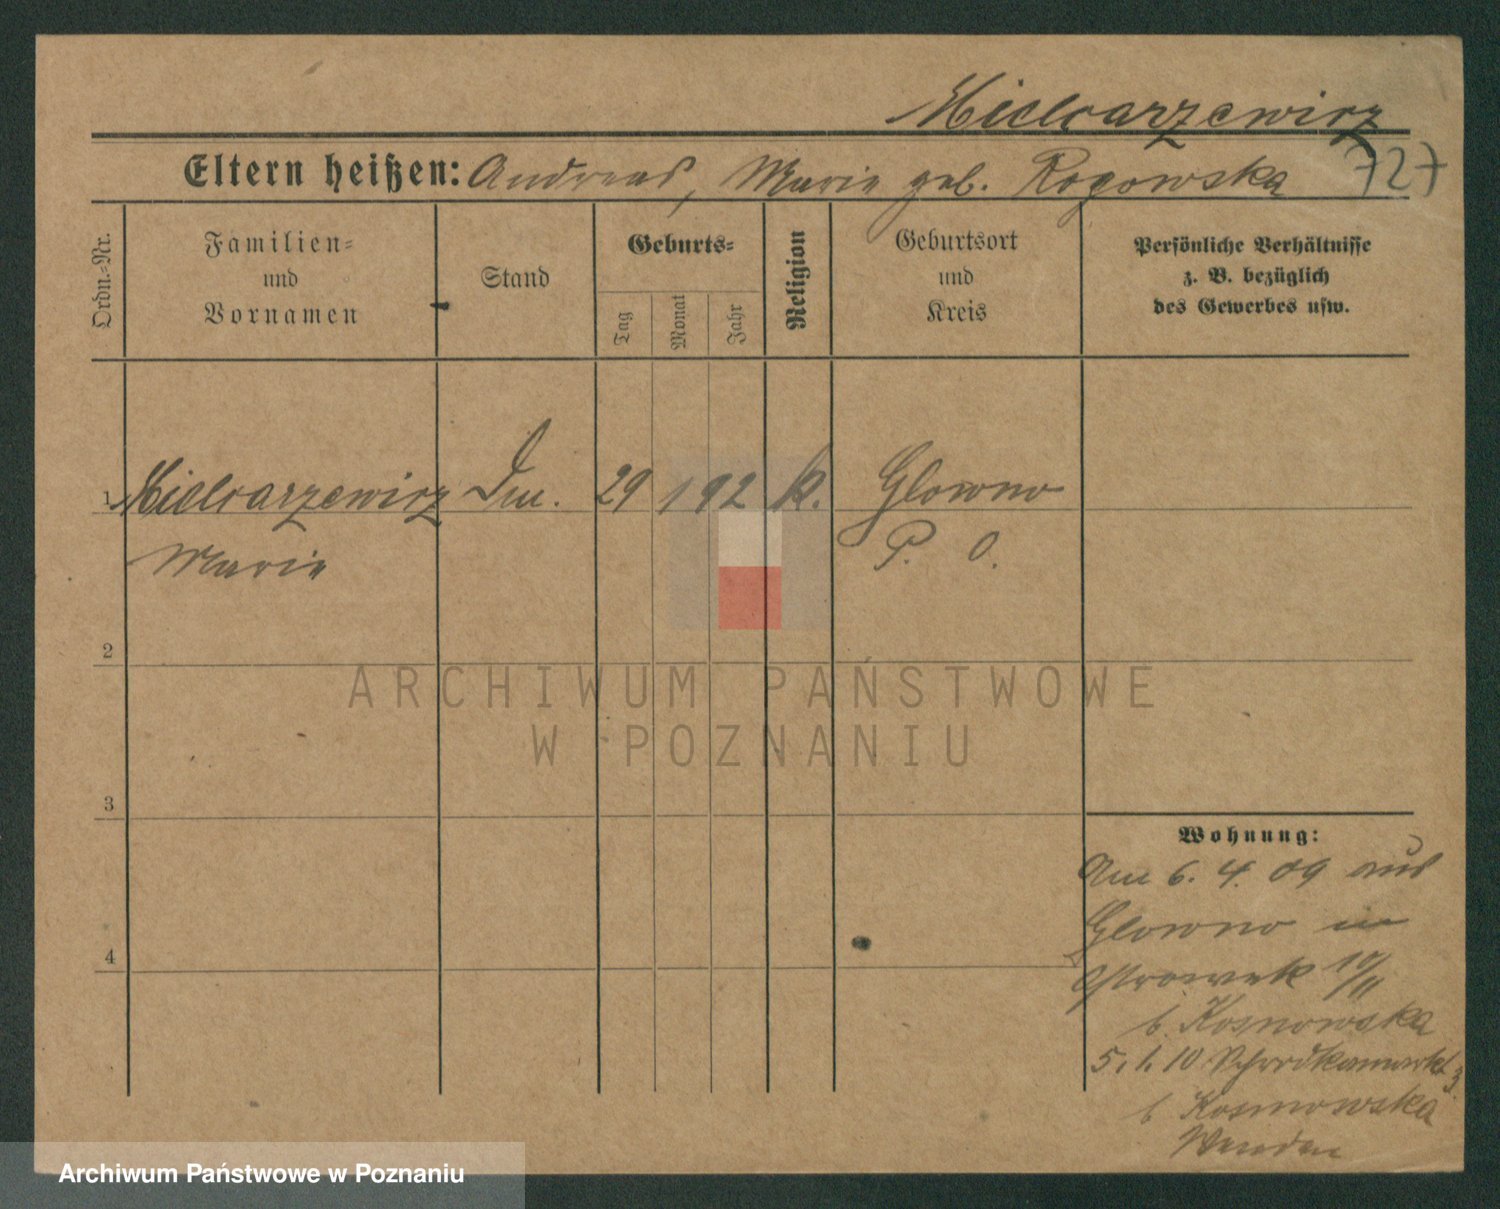 Mielcarzewicz
Eltern heißen: Andreas, Marie geb. Rogowska 727
Ordn.-Nr.
Familien-
und
Vornamen
Stand
Geburts-
Tag
Monat
Jahr
Religion
Geburtsort
und
Kreis
Persönliche Verhältnisse
z. B. bezüglich
des Gewerbes usw.
1 Mielcarzewicz 29 1 92 k. Glowno
Marie P. O.
2
3
4
Wohnung:
Am 6. 4. 09 aus
Glowno in
Ostrowek 10/11
b. Kosnowska
5. 1. 10 3
b Kosmowska
ARCHIWUM PAŃSTWOWE
W POZNANIU
Archiwum Państwowe w Poznaniu